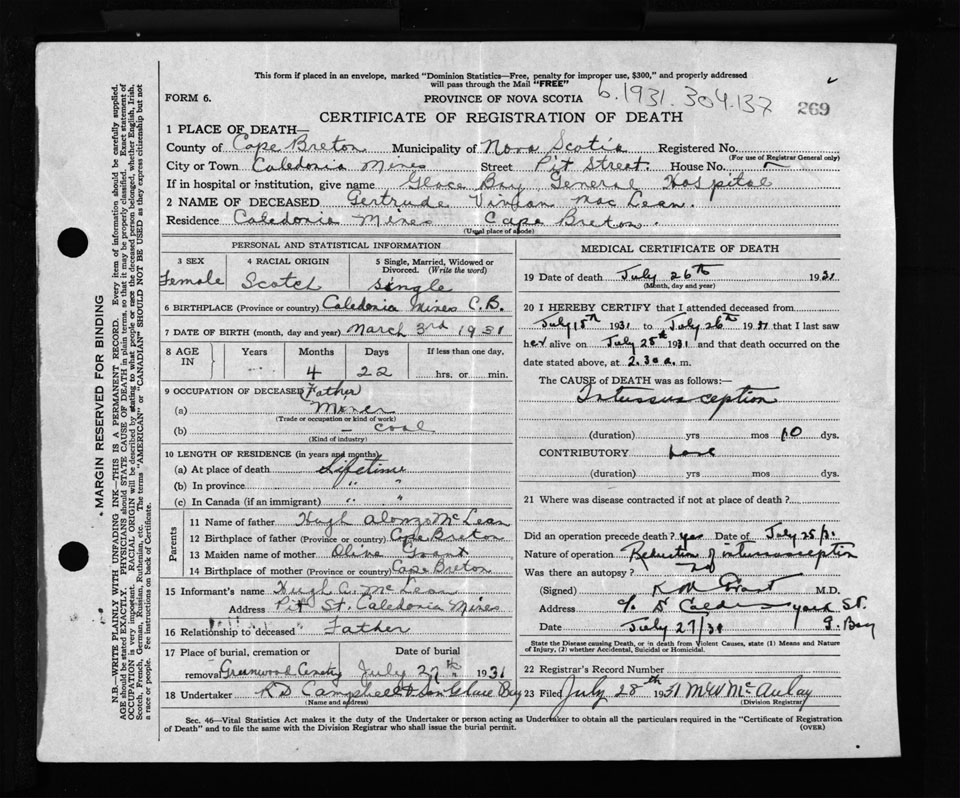 This form if placed in an envelope, marked "Dominion Statistics—Free, penalty for improper use, $300," and properly addressed
will pass through the Mail "FREE"
6.1931.304.137
269
FORM 6.
PROVINCE OF NOVA SCOTIA
CERTIFICATE OF REGISTRATION OF DEATH
1 PLACE OF DEATH—
County of Cape Breton Municipality of Nova Scotia Registered No.
(For use of Registrar General only)
City or Town Caledonia Mines Street Pit Street. House No. —
If in hospital or institution, give name Glace Bay General Hospital
2 NAME OF DECEASED Gertrude Vivian Mac Lean.
Residence Caledonia Mines Cape Breton.
(Usual place of abode)
PERSONAL AND STATISTICAL INFORMATION
3 SEX 4 RACIAL ORIGIN 5 Single, Married, Widowed or Divorced. (Write the word)
Female Scotch Single
6 BIRTHPLACE (Province or country) Caledonia Mines C.B.
7 DATE OF BIRTH (month, day and year) March 3rd 1931
8 AGE IN Years Months Days If less than one day.
4 22 hrs. or min.
9 OCCUPATION OF DECEASED Father
(a) Miner
(Trade or occupation or kind of work)
(b) — coal
(Kind of industry)
10 LENGTH OF RESIDENCE (in years and months)
(a) At place of death Lifetime
(b) In province " "
(c) In Canada (if an immigrant) " "
Parents
11 Name of father Hugh Alonzo McLean
12 Birthplace of father (Province or Country) Cape Breton
13 Maiden name of mother Olive Grant
14 Birthplace of mother (Province or Country) Cape Breton
15 Informant's name Hugh A. McLean
Address Pit St. Caledonia Mines
16 Relationship to deceased Father
17 Place of burial, cremation or removal Date of burial
Greenwood Cemetry July 27th 1931
18 Undertaker KD Campbell & Son Glace Bay
(Name and address)
MEDICAL CERTIFICATE OF DEATH
19 Date of death July 26th 1931
(Month, day and year)
20 I HEREBY CERTIFY that I attended deceased from
July 15th 1931 to July 26th 1931 that I last saw
her alive on July 25th 1931 and that death occurred on the
date stated above, at 2.30 a. m.
The CAUSE of DEATH was as follows:
Intussusception
(duration) yrs mos 10 dys.
CONTRIBUTORY none
(duration) yrs mos dys.
21 Where was disease contracted if not at place of death?
Did an operation precede death? yes Date of July 25/31
Nature of operation Reduction of intussusception
Was there an autopsy? no
(Signed) Grant M.D.
Address St.
Date July 27/31 G. Bay
State the Disease causing Death, or in death from Violent Causes, state (1) Means and Nature
of Injury, (2) whether Accidental, Suicidal or Homicidal.
22 Registrar's Record Number
23 Filed July 28th 1931 McAulay
(Division Registrar)
Sec. 46—Vital Statistics Act makes it the duty of the Undertaker or person acting as Undertaker to obtain all the particulars required in the "Certificate of Registration
of Death" and to file the same with the Division Registrar who shall issue the burial permit.
(OVER)
MARGIN RESERVED FOR BINDING
N.B.—WRITE PLAINLY WITH UNFADING INK—THIS IS A PERMANENT RECORD. Every item of information should be carefully supplied.
AGE should be stated EXACTLY. PHYSICIANS should STATE CAUSE OF DEATH in plain terms, so that it may be properly classified. Exact statement of
OCCUPATION is very important. RACIAL ORIGIN will be described by stating to what people or race the deceased person belonged, whether English, Irish,
Scotch, French, German, Russian, Ruthenian, etc. The terms "AMERICAN" or "CANADIAN" SHOULD NOT BE USED as they express citizenship but not
a race or people. Fee instructions on back of Certificate.